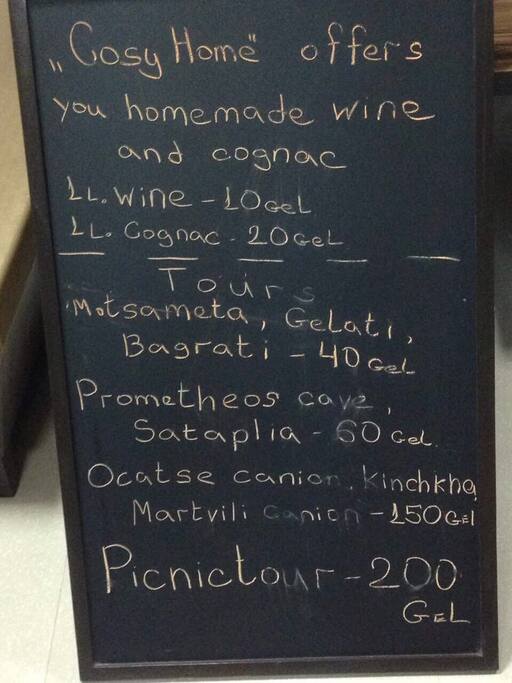 „Cosy Home" offers
you homemade wine
and cognac
1L. Wine - 10 GeL
1L. Cognac - 20 GeL
Tours
Motsameta, Gelati,
Bagrati - 40 GeL
Prometheos cave,
Sataplia - 60 GeL.
Ocatse canion, kinchkha,
Martvili canion - 150 GEl
Picnictour - 200
GeL